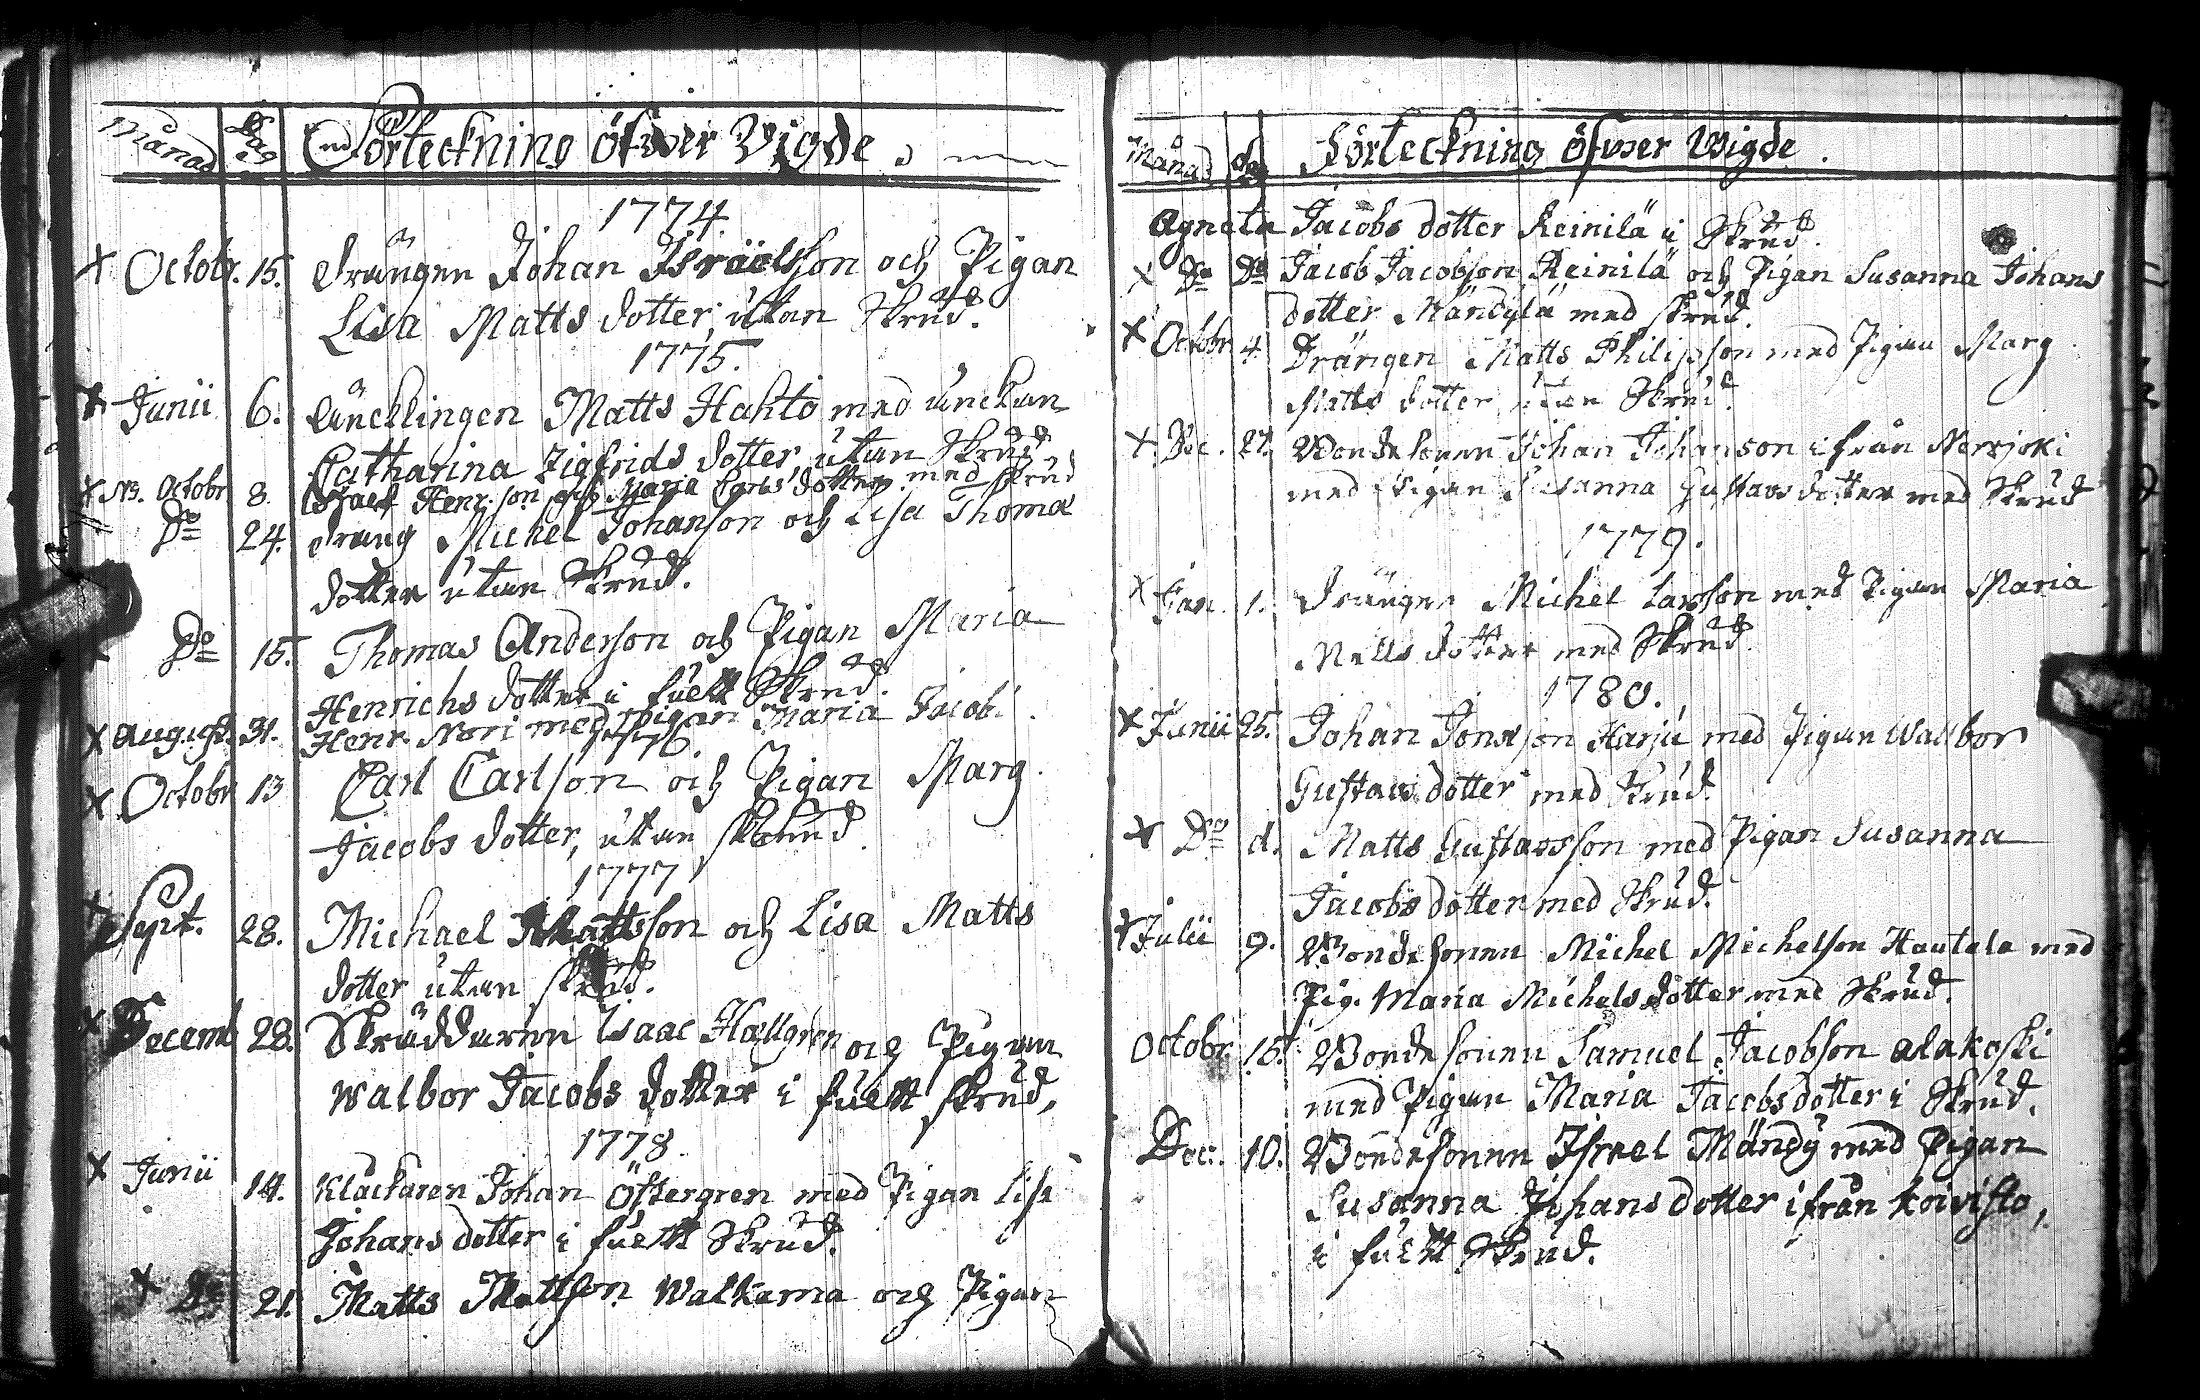 Månad Dag Förteckning öfwer Vigde
1774.
Octobr. 15. Drängen Johan Israelsson och Pigan
Lisa Matts dotter, utan Skrud.
1775.
Junii 6. Äncklingen Matts Hahto med änckan
Catharina Zigfrids dotter utan Skrud
Octobr 8. Henr.son och Maria dotter med skrud
Do 24. Dräng Michel Johansson och Lisa Thomæ
dotter utan Skrud.
Do 15. Thomas Anderson och Pigan Maria
Henrichs dotter i fullt Skrud.
August. 31. Henr. Nori med Pigan Maria Jacobs
1776.
Octobr 13 Carl Carlsson och Pigan Marg.
Jacobs dotter, utan skrud
1777
Sept. 28. Michael Mattsson och Lisa Matts
dotter utan skrud.
Decemb 28. Skräddaren Isaac Hællgren och Pigan
Walbor Jacobs dotter i fullt skrud,
1778
Junii 14. Klåckaren Johan Östergren med Pigan Lisa
Johans dotter i fullt Skrud.
Do 21. Matts Mattsson Walkama och Pigan
Månad dag Förteckning öfwer Wigde.
Agneta Jacobs dotter Reinilä i Skrud.
Do Do Jacob Jacobsson Reinilä och Pigan Susanna Johans
dotter Mändylä med skrud.
Octobr 4. Drängen Matts Philipsson med Pigan Marg
Matts dotter utan Skrud.
Dec. 27. Bondesonen Johan Johanson ifrån Nerrjoki
med Pigan Susanna Gustavs dotter med Skrud
1779.
Jan. 1. Drängen Michel Larsson med Pigan Maria
Matts dotter med Skrud.
1780.
Junii 25. Johan Jonsson Harju med Pigan Wallbor
Gustavs dotter med Skrud.
Do d. Matts Gustavsson med Pigan Susanna
Jacobs dotter med Skrud.
Julii 9. Bondesonen Michel Michelson Hautala med
Pig. Maria Michels dotter med Skrud.
Octobr. 15. Bondesonen Samuel Jacobson Alakoski
med Pigan Maria Jacobs dotter i Skrud.
Dec. 10. Bondesonen Israel Mändy med Pigan
Susanna Johans dotter ifrån Koivisto,
i fullt Skrud.